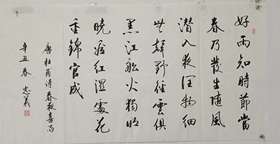 好雨知時節當
春乃發生隨風
潛入夜潤物細
無聲野徑雲俱
黑江船火獨明
曉看紅濕處花
重錦官城
唐杜甫詩春夜喜雨
辛丑春 忠義